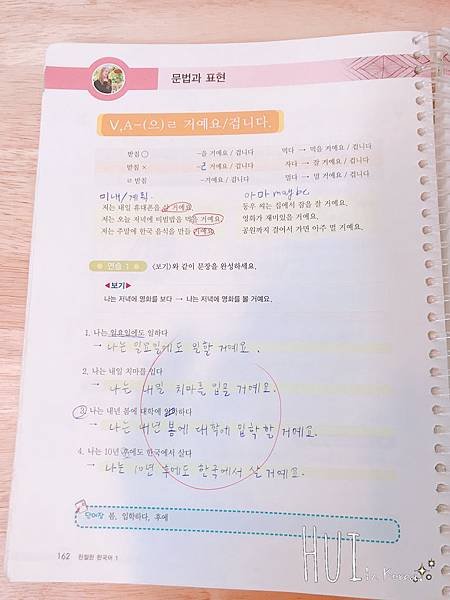 문법과 표현
V,A-(으)ㄹ 거예요/겁니다.
받침 ○ -을 거예요 / 겁니다 먹다 → 먹을 거예요 / 겁니다
받침 × -ㄹ 거예요 / 겁니다 자다 → 잘 거예요 / 겁니다
ㄹ 받침 -거예요 / 겁니다 멀다 → 멀 거예요 / 겁니다
미래/계획 아마 maybe
저는 내일 휴대폰을 살 거예요. 동우 씨는 집에서 잠을 잘 거예요.
저는 오늘 저녁에 비빔밥을 먹을 거예요. 영화가 재미있을 거예요.
저는 주말에 한국 음식을 만들 거예요. 공원까지 걸어서 가면 아주 멀 거예요.
연습 1 <보기>와 같이 문장을 완성하세요.
◀보기▶
나는 저녁에 영화를 보다 → 나는 저녁에 영화를 볼 거예요.
1. 나는 일요일에도 일하다
→ 나는 일요일에도 일할 거예요.
2. 나는 내일 치마를 입다
→ 나는 내일 치마를 입을 거예요.
3. 나는 내년 봄에 대학에 입학하다
→ 나는 내년 봄에 대학에 입학할 거예요.
4. 나는 10년 후에도 한국에서 살다
→ 나는 10년 후에도 한국에서 살 거예요.
단어장 봄, 입학하다, 후에
162 친절한 한국어 1
HUI in Korea